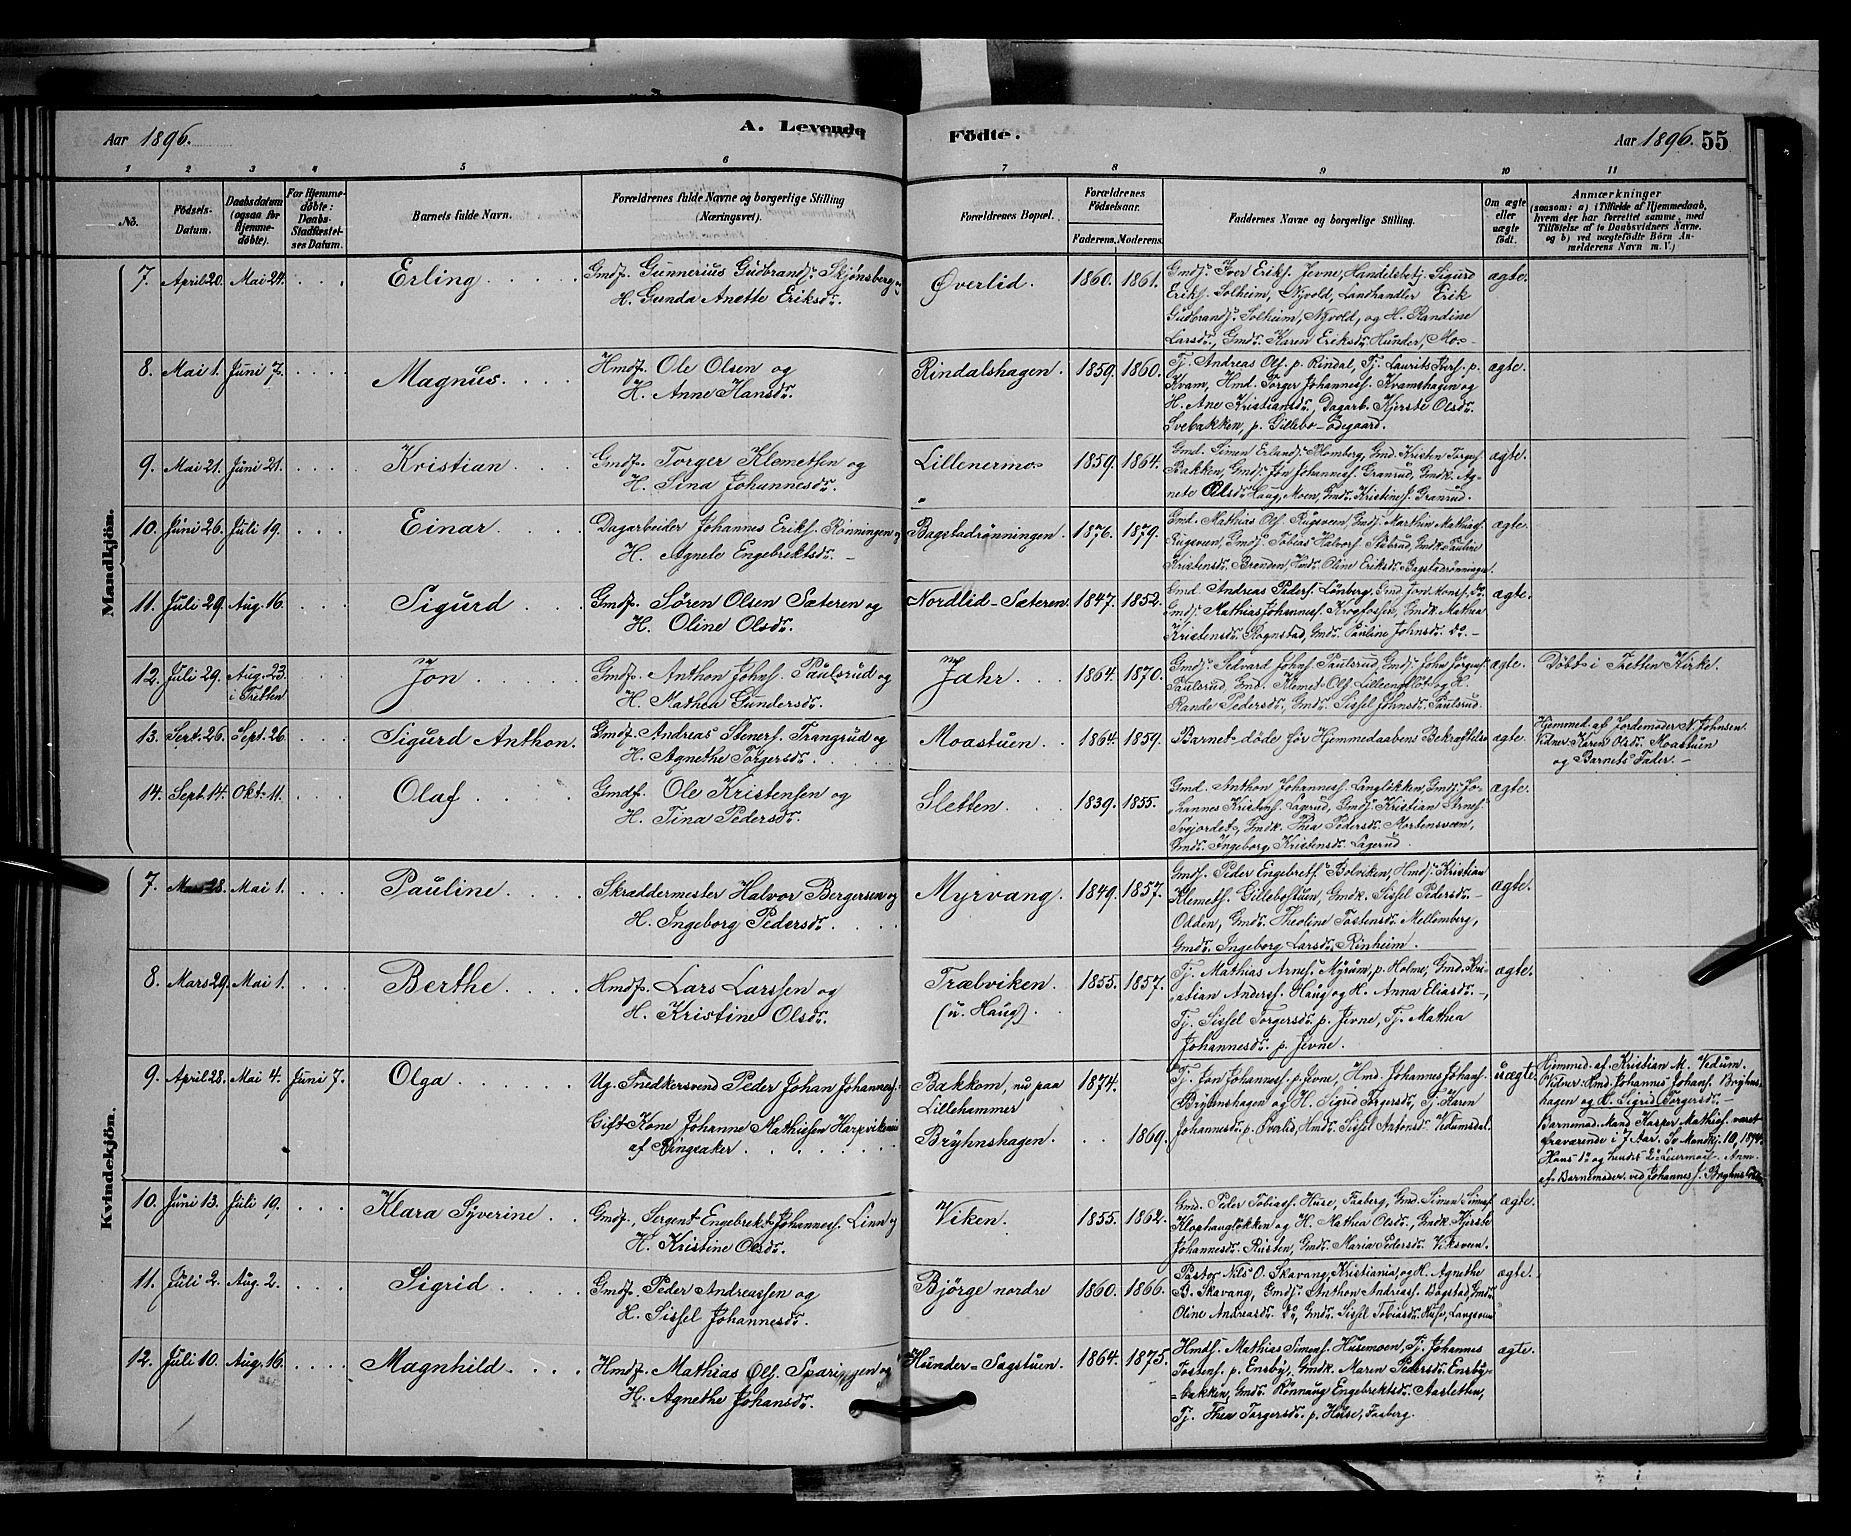 Aar 1896. A. Levende Födte. Aar 1896. 55
1 2 3 4 5 6 7 8 9 10 11
No. Födsels-Datum. Daabsdatum (ogsaa for Hjemmedöbte). For Hjemmedöbte: Daabs-Stadfæstelses Datum. Barnets fulde Navn. Forældrenes fulde Navne og borgerlige Stilling (Næringsvei). Forældrenes Bopæl. Forældrenes Födselsaar. Faderens. Moderens. Faddernes Navne og borgerlige Stilling. Om ægte eller uægte födt. Anmærkninger
(saasom: a) i Tilfælde af Hjemmedaab,
hvem der har forrettet samme, med
Tilföielse af to Daabsvidners Navne,
og b) ved uægtefödte Börn Anmelderens Navn m. V.)
Mandkjön.
7. April 20. Mai 24. Erling Gmdf. Gunnerius Gudbrands. Skjønsberg og
H. Gunda Anette Eriksdr. Øverlid. 1860. 1861. Gmds. Iver Eriks. Jevne, Handelsbetj. Sigurd
Eriks. Solheim, Nyvold, Landhandler Erik
Gudbrands. Solheim, Nyvold, og H. Randine
Larsdr., Gmds. Karen Eriksdr. Hunder, Mo- ægte.
8. Mai 1. Juni 7. Magnus. Hmdf. Ole Olsen og
H. Anne Hansdr. Rindalshagen. 1859. 1860. Tj. Andreas Ols. p. Rindal, Tj. Laurits Pers. p.
Kvam, Hmd. Torger Johanness. Kvamshagen og
H. Ane Kristiansdr., Dagarb. Kjerste Olsdr.
Svebakken, p. Gillebo-ödegaard. ægte.
9. Mai 21. Juni 21. Kristian Gmdf. Torger Klemetsen og
H. Sina Johannesdr. Lillenermo 1859. 1864. Gmd. Simen Erlands. Blomberg, Gmd. Kristen Torgers.
Bakken, Gmds. Jon Johanness. Granrud, Gmdk. Agnete
Olsdr. Haug, Moen, Gmds. Kristine Granrud. ægte.
10. Juni 26. Juli 19. Einar Dagarbeider Johannes Eriks. Rønningen og
H. Agnete Engebriktsdr. Bagstadrønningen. 1876. 1879. Gmd. Mathias Ols. Rugsveen, Gmds. Marthin Mathiass.
Rugsveen, Gmds. Tobias Halvors. Stubrud, Gmdk. Pauline
Kristensdr. Brenden, Hmds. Oline Eriksdr. Bagstadrønningen. ægte.
11. Juli 29. Aug. 16. Sigurd Gmdf. Søren Olsen Sæteren og
H. Oline Olsdr. Nordlid-Sæteren. 1847. 1852. Gmd. Andreas Peders. Lönberg, Gmd. Jon Mons. do.
Gmds. Mathias Johanness. Krogfossen, Gmdk. Mathea
Kristensdr. Rognstad, Gmds. Pauline Johnsdr. do. ægte.
12. Juli 29. Aug. 23. i Tretten Jon Gmdf. Anthon Johns. Paulsrud og
H. Mathea Gundersdr. Jahr 1864. 1870. Gmds. Edvard Johns. Paulsrud, Gmds. John Jörgens.
Paulsrud, Gmd. Klemet Ols. Lilleengflöt og H.
Rande Pedersdr., Gmds. Sissel Johnsdr. Paulsrud. ægte. Döbt i Tretten Kirke.
13. Sept. 26. Sept. 26 Sigurd Anthon. Gmdf. Andreas Steners. Trangrud og
H. Agnethe Torgersdr. Moastuen 1864. 1859. Barnet döde för Hjemmedaabens Bekræftelse ægte. Hjemmed. af Jordemoder N. Johnsen.
Vidner: Karen Olsdr. Moastuen
og Barnets Fader.
14. Sept. 14. Okt. 11. Olaf Gmdf. Ole Kristensen og
H. Tina Pedersdr. Sletten 1839. 1855. Gmd. Anthon Johanness. Langlökken, Gmds. Johannes
Kristens. Lagerud, Gmds. Kristian Arnes.
Svejordet, Gmdk. Thea Pedersdr. Mortensveen,
Gmds. Ingeborg Kristensdr. Lagerud. ægte.
Kvindekjön.
7. 28. Mai 1. Pauline Skræddermester Halvor Bergersen og
H. Ingeborg Pedersdr. Myrvang. 1849. 1857. Gmds. Peder Engebrets. Bolviken, Hmds. Kristian
Klemets. Gillebostuen, Gmdk. Sissel Pedersdr.
Odden, Gmds. Theoline Tostensdr. Mellemberg,
Gmds. Ingeborg Larsdr. Rinheim. ægte.
8. Mars 29. Mai 1. Berthe Hmdf. Lars Larssen og
H. Kristine Olsdr. Trælviken
(u. Haug) 1855. 1857. Tj. Mathias Arnes. Myrum, p. Holme, Gmd. Kristian
Anderss. Haug og H. Anna Eliasdr.,
Tj. Sissel Torgersdr. p. Jevne, Tj. Mathea
Johannesdr. p. Jevne. ægte.
9. April 28. Mai 4. Juni 7. Olga Ug. Snedkersvend Peder Johan Johanness.
Gift Kone Johanne Mathisen Harpviken
af Ringsaker. Bakkom, nu paa
Lillehammer
Bryhnshagen. 1874. 1869. Tj. Jon Johanness. p. Jevne, Hmd. Johannes Johans.
Bryhnshagen og H. Sigrid Torgersdr., Tj. Karen
Johannesdr. p. Øverlid, Hmds. Sissel Antonsdr. Vedumsdal. uægte Hjemmed. af Kristian M. Vedum.
Vidner: Hmd. Johannes Johans. Bryhnshagen
og H. Sigrid Torgersdr.
Barnemod. Mand Kasper Mathis. været
fraværende i 7 Aar. Sv Mandkj. 10, 1894.
Hans 1ste og hendes 2det Leiermaal. Anm.
af Barnemoder ved Johannes J. Bryhnshagen
10. Juni 13. Juli 19. Klara Syverine Gmdf., Sergent Engebrekt Johanness. Linn og
H. Kristine Olsdr. Viken. 1855. 1862. Gmd. Peder Tobiass. Huse, Faaberg, Gmd. Simen Simens.
Klophauglökken og H. Mathea Olsdr., Gmdk. Kjerste
Johannesdr. Rusten, Gmds. Maria Pedersdr. Viksveen. ægte.
11. Juli 2. Aug. 2. Sigrid Gmdf. Peder Andreassen og
H. Sissel Johannesdr. Bjørge nordre 1860. 1866. Pastor Nils O. Skavang, Kristiania, og H. Agnethe
B. Skavang, Gmds. Anthon Andreass. Bagstad, Gmds.
Oline Andreasdr. do, Gmds. Sissel Tobiasdr. Huse, Langsveen ægte.
12. Juli 10. Aug. 16. Magnhild Hmdf. Mathias Ols. Sparingen og
H. Agnethe Johansdr. Hunder-Sagstuen. 1864. 1875. Hmds. Mathias Simens. Husemoen, Tj. Johannes
Tostens. p. Ensby, Gmdk. Maren Pedersdr. Ensbybakken,
Gmds. Rönnaug Engebriktsdr. Aarsletten,
Tj. Thea Torgersdr. p. Huse, Faaberg. ægte.